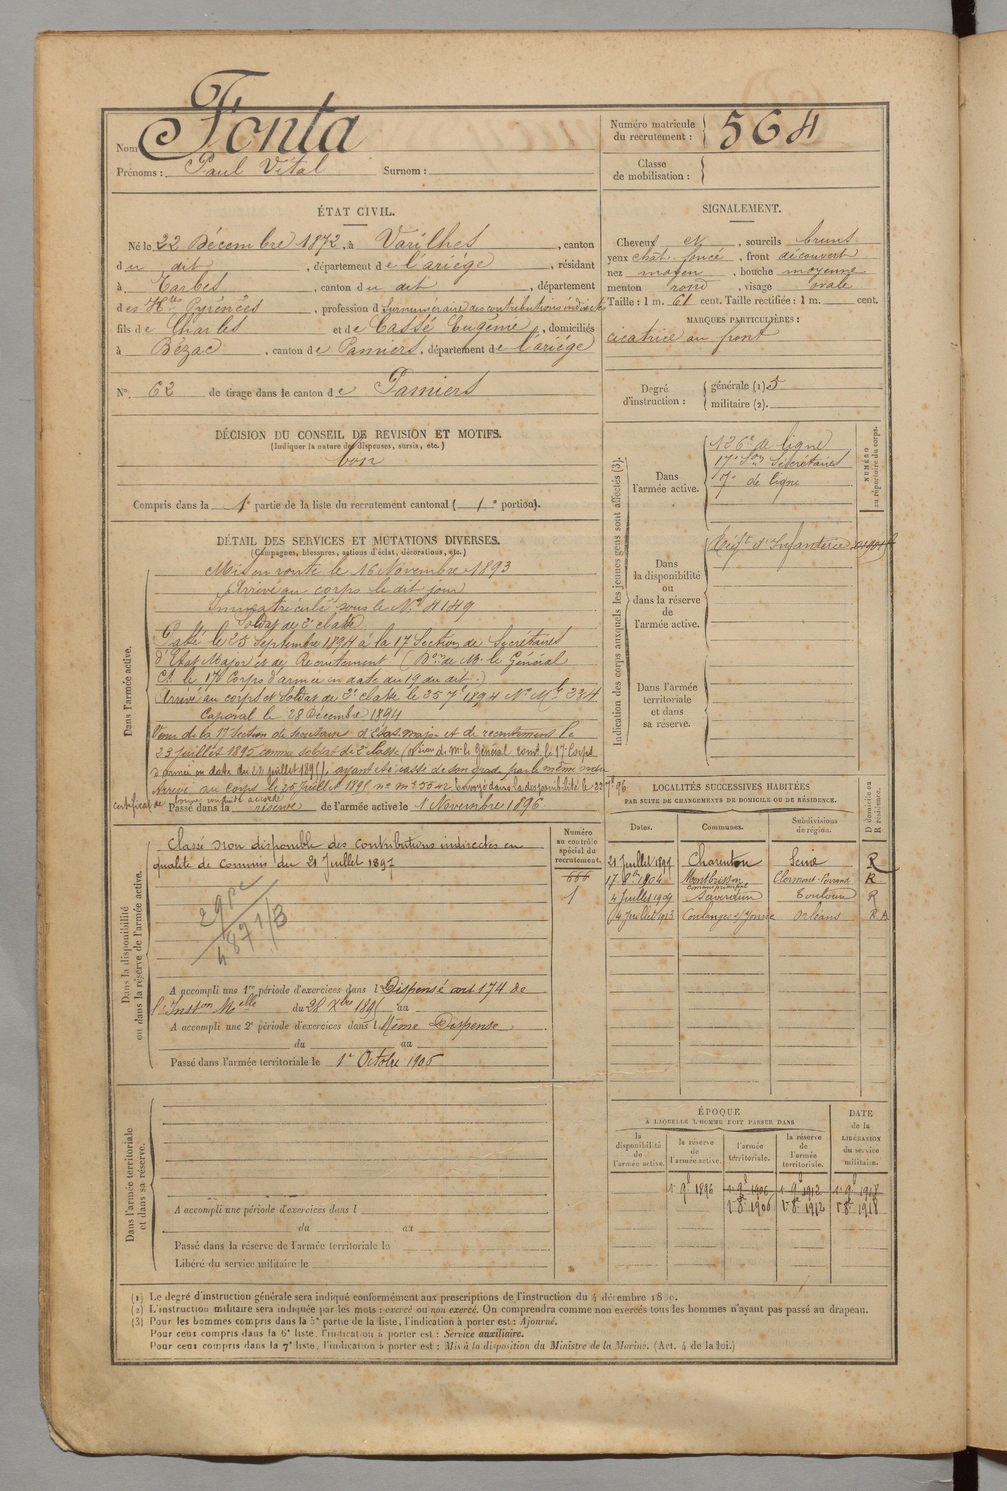 Nom Fonta
Prénoms : Paul Vital Surnom :
Numéro matricule du recrutement : 564
Classe de mobilisation :
ÉTAT CIVIL.
Né le 22 Décembre 1872, à Varilhes, canton
du dit, département de l'ariége, résidant
à Tarbes, canton du dit, département
des Htes Pyrénées, profession de Surnuméraire des contributions indirectes
fils de Charles et de Cassé Eugénie, domiciliés
à Bézac, canton de Pamiers, département de l'ariége
N° 62 de tirage dans le canton de Pamiers
SIGNALEMENT.
Cheveux et, sourcils bruns
yeux chât. foncé, front découvert
nez moyen, bouche moyenne
menton rond, visage ovale
Taille : 1 m. 61 cent. Taille rectifiée : 1 m. cent.
MARQUES PARTICULIÈRES :
cicatrice au front
Degré d'instruction : générale (1) 3
militaire (2).
DÉCISION DU CONSEIL DE REVISION ET MOTIFS.
(Indiquer la nature des dispenses, sursis, etc.)
bon
Compris dans la 1e partie de la liste du recrutement cantonal (1e portion).
DÉTAIL DES SERVICES ET MUTATIONS DIVERSES.
(Campagnes, blessures, actions d'éclat, décorations, etc.)
Dans l'armée active.
Mis en route le 16 Novembre 1893
Arrivé au corps le dit jour
Immatriculé sous le N° 4149
Soldat de 2e classe
Passé le 25 Septembre 1894 à la 17 Section de Secrétaires
d'Etat Major et de Recrutement (Don de Mr le Général
Ct le 17e Corps d'armée en date du 19 du dit.)
Arrivé au corps et Soldat de 2e classe le 25 7e 1894 N° Mle 234
Caporal le 28 Décembre 1894
Venu de la 17 Section de Secrétaires d'état-major et de recrutement le
23 Juillet 1895 comme soldat de 2e classe (Don de Mr le Général Comt le 17e Corps
d'armée en date du 20 juillet 1895), ayant été cassé de son grade par le même ordre
Arrivé au Corps le 25 Juillet 1895 Envoyé dans la disponibilité le 22 7bre 96
certificat de bonne conduite accordé
Passé dans la réserve de l'armée active le 1 Novembre 1896
Indication des corps auxquels les jeunes gens sont affectés (3).
NUMÉRO au répertoire du corps.
Dans l'armée active.
126e de ligne
17e Son Secrétaires
7e de ligne
Dans la disponibilité ou dans la réserve de l'armée active.
Régt d'Infanterie
Dans l'armée territoriale et dans sa réserve.
Dans la disponibilité ou dans la réserve de l'armée active.
Classé non disponible des Contributions indirectes en
qualité de Commis du 21 Juillet 1897
Numéro au contrôle spécial du recrutement.
666
1
A accompli une 1re période d'exercices dans l Dispensé art 174 de
l'Inston Melle du 28 Xbre 1895 au
A accompli une 2e période d'exercices dans l Même Dispense
du au
Passé dans l'armée territoriale le 1er Octobre 1906
LOCALITÉS SUCCESSIVES HABITÉES
PAR SUITE DE CHANGEMENTS DE DOMICILE OU DE RÉSIDENCE.
Dates. Communes. Subdivisions de région. D domicile ou R résidence.
21 Juillet 1897 Charenton Seine R
17 8bre 1904 Montbrisson Clermont-Ferrand R
4 Juillet 1909 Saverdun Toulouse R
14 Juillet 1913 Coulanges s/ Yonne Orléans R
Dans l'armée territoriale et dans sa réserve.
A accompli une période d'exercices dans l
du au
Passé dans la réserve de l'armée territoriale le
Libéré du service militaire le
ÉPOQUE
A LAQUELLE L'HOMME DOIT PASSER DANS
DATE de la LIBÉRATION du service militaire.
la disponibilité de l'armée active. la réserve de l'armée active. l'armée territoriale. la réserve de l'armée territoriale.
1er 9e 1896 1er 9e 1906 1er 9e 1912 1er 9e 1918
1er 8e 1906 1er 8e 1912 1er 8e 1918
(1) Le degré d'instruction générale sera indiqué conformément aux prescriptions de l'instruction du 4 décembre
(2) L'instruction militaire sera indiquée par les mots : exercé ou non exercé. On comprendra comme non exercés tous les hommes n'ayant pas passé au drapeau.
(3) Pour les hommes compris dans la 5e partie de la liste, l'indication à porter est : Ajourné.
Pour ceux compris dans la 6e liste, l'indication à porter est : Service auxiliaire.
Pour ceux compris dans la 7e liste, l'indication à porter est : Mis à la disposition du Ministre de la Marine. (Art. 4 de la loi.)